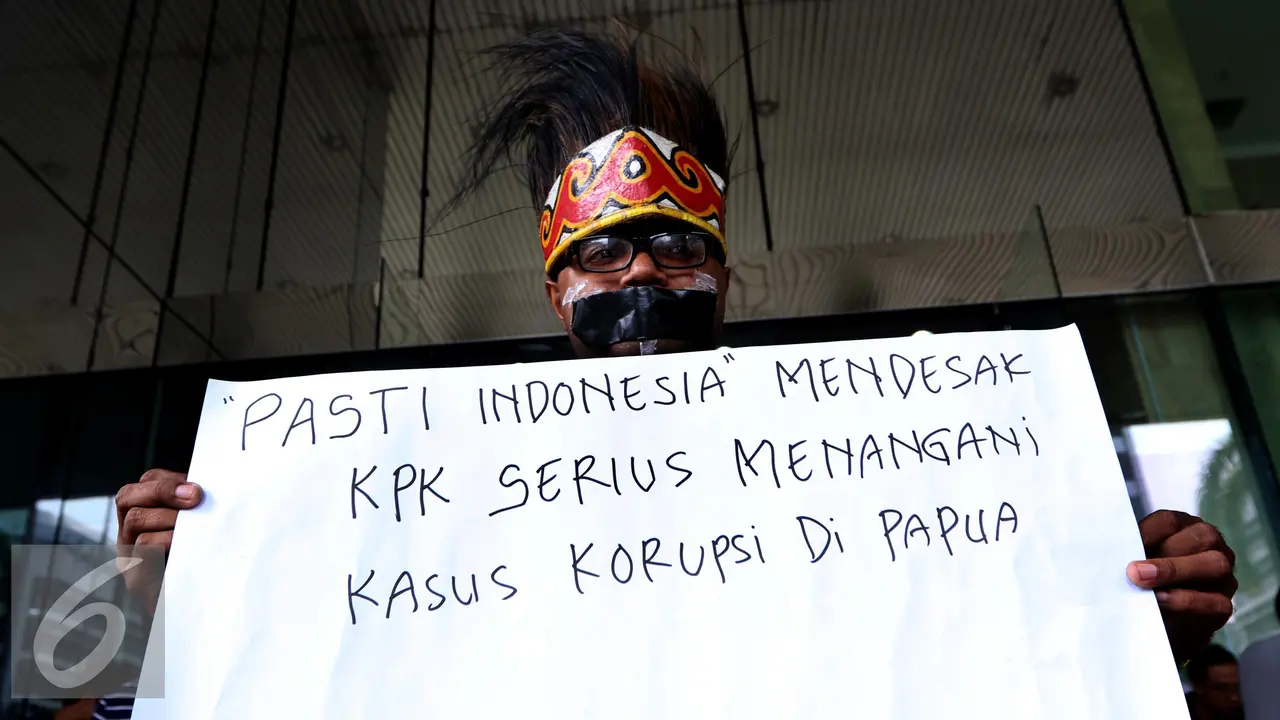 "PASTI INDONESIA" MENDESAK
KPK SERIUS MENANGANi
KASUS KORUPSi Di PAPUA
6